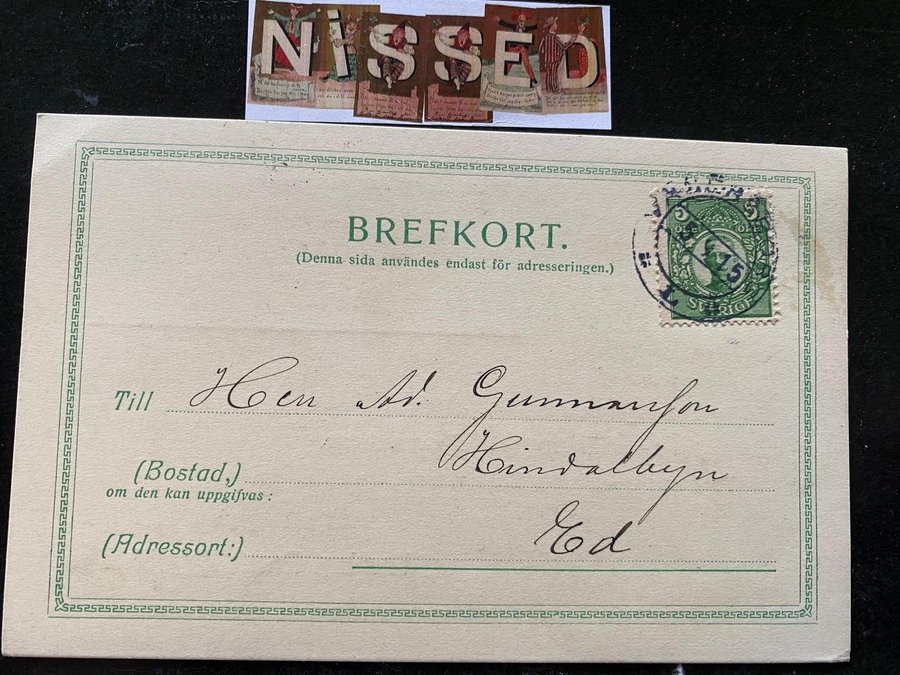 NiSSED
BREFKORT.
(Denna sida användes endast för adresseringen.)
5 5
SVERIGE
Till Herr Ad. Gunnarson
(Bostad,) Hindalbyn
om den kan uppgifvas:
(Adressort:) Ed